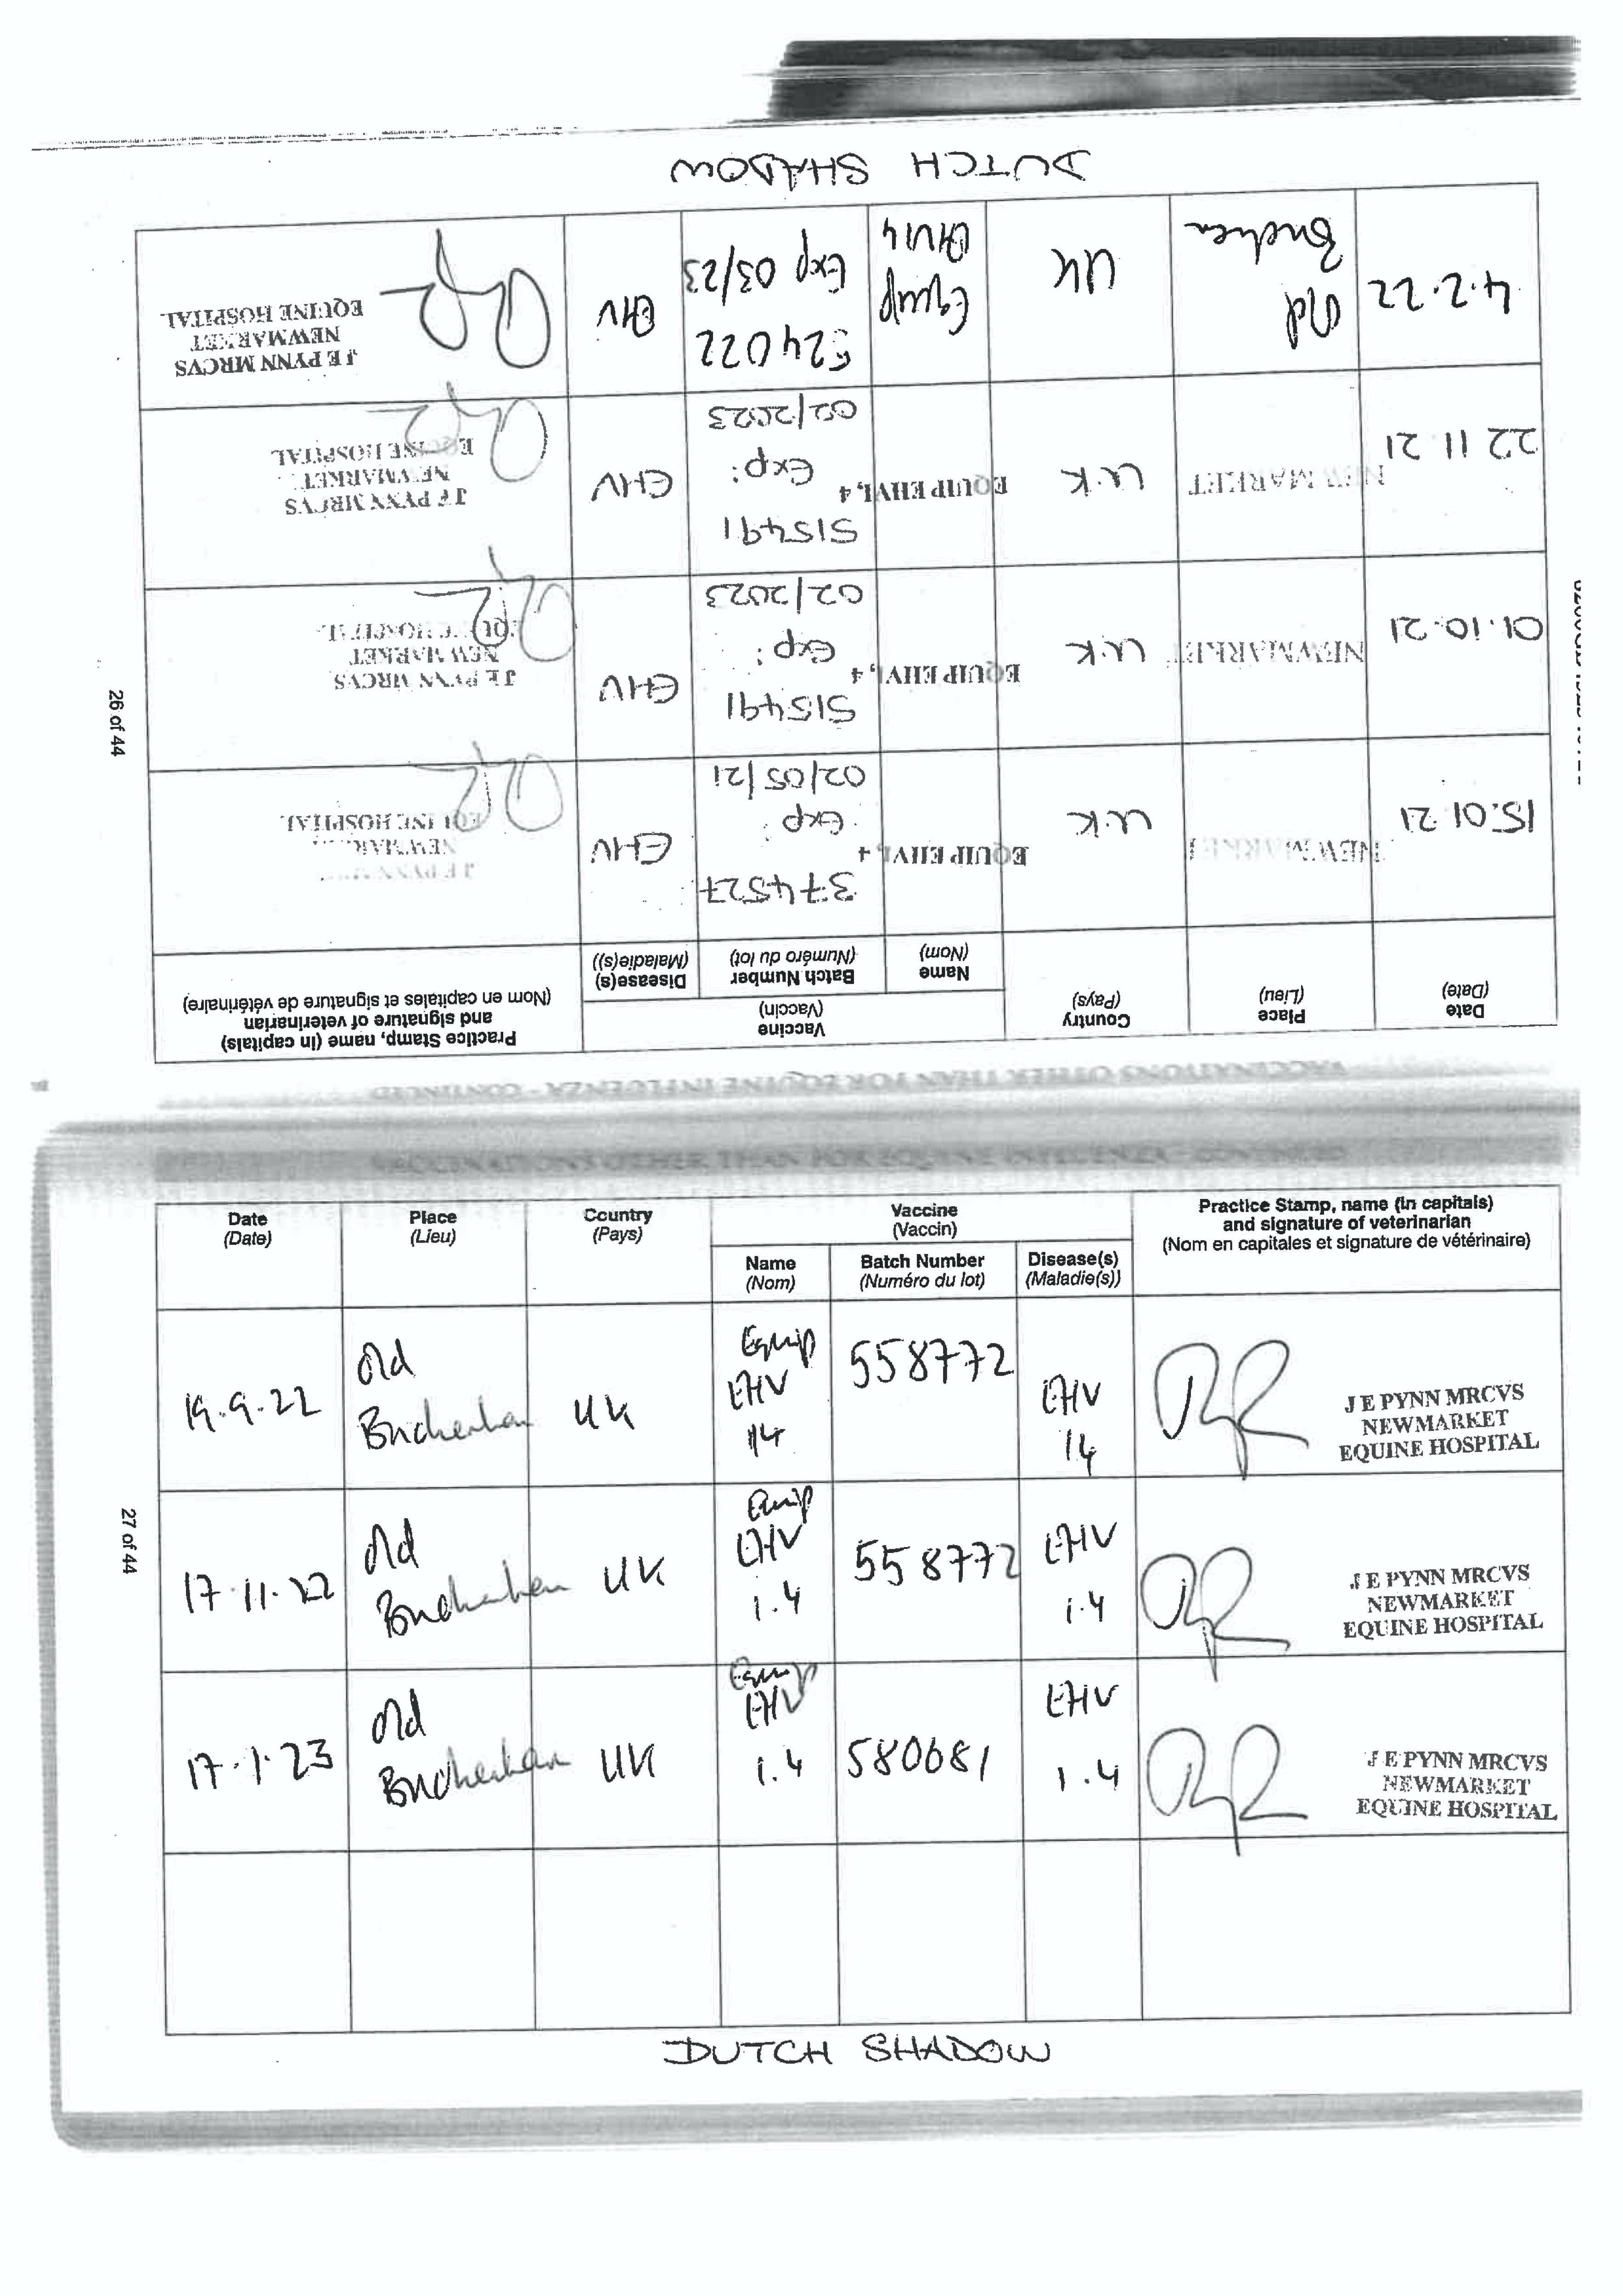 DUTCH SHADOW
VACCINATIONS OTHER THAN FOR EQUINE INFLUENZA - CONTINUED
Date
(Date)
Place
(Lieu)
Country
(Pays)
Vaccine
(Vaccin)
Name
(Nom)
Batch Number
(Numéro du lot)
Disease(s)
(Maladie(s))
Practice Stamp, name (in capitals)
and signature of veterinarian
(Nom en capitales et signature de vétérinaire)
15.01.21
NEWMARKET
U.K
EQUIP EHV1,4
374527
Exp:
02/05/21
EHV
J E PYNN
NEWMARKET
EQUINE HOSPITAL
01.10.21
NEWMARKET
U.K
EQUIP EHV1,4
515491
Exp:
02/2023
EHV
J E PYNN MRCVS
NEWMARKET
EQUINE HOSPITAL
22 11 21
NEWMARKET
U.K
EQUIP EHV1,4
515491
Exp:
02/2023
EHV
J E PYNN MRCVS
NEWMARKET
EQUINE HOSPITAL
4.2.22
Old
UK
Equip
EHV14
524022
Exp 03/23
EHV
J E PYNN MRCVS
NEWMARKET
EQUINE HOSPITAL
26 of 44
VACCINATIONS OTHER THAN FOR EQUINE INFLUENZA - CONTINUED
Date
(Date)
Place
(Lieu)
Country
(Pays)
Vaccine
(Vaccin)
Name
(Nom)
Batch Number
(Numéro du lot)
Disease(s)
(Maladie(s))
Practice Stamp, name (in capitals)
and signature of veterinarian
(Nom en capitales et signature de vétérinaire)
19.9.22
Old
Buckenham
UK
Equip
EHV
14
558772
EHV
14
J E PYNN MRCVS
NEWMARKET
EQUINE HOSPITAL
17.11.22
Old
Buckenham
UK
Equip
EHV
1.4
558772
EHV
1.4
J E PYNN MRCVS
NEWMARKET
EQUINE HOSPITAL
17.1.23
Old
Buckenham
UK
Equip
EHV
1.4
580681
EHV
1.4
J E PYNN MRCVS
NEWMARKET
EQUINE HOSPITAL
27 of 44
DUTCH SHADOW